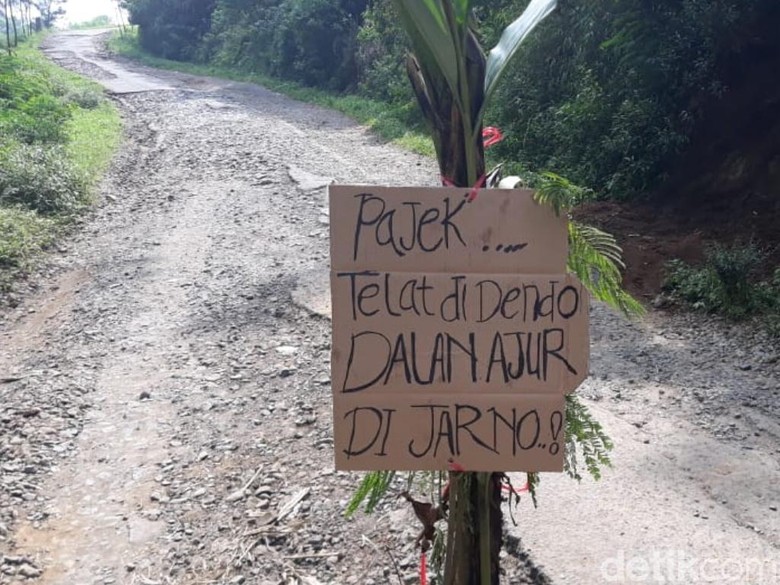 PaJek ....
TeLat di Dendo
DALAN AJUR
DI JARNO..!
detikcom